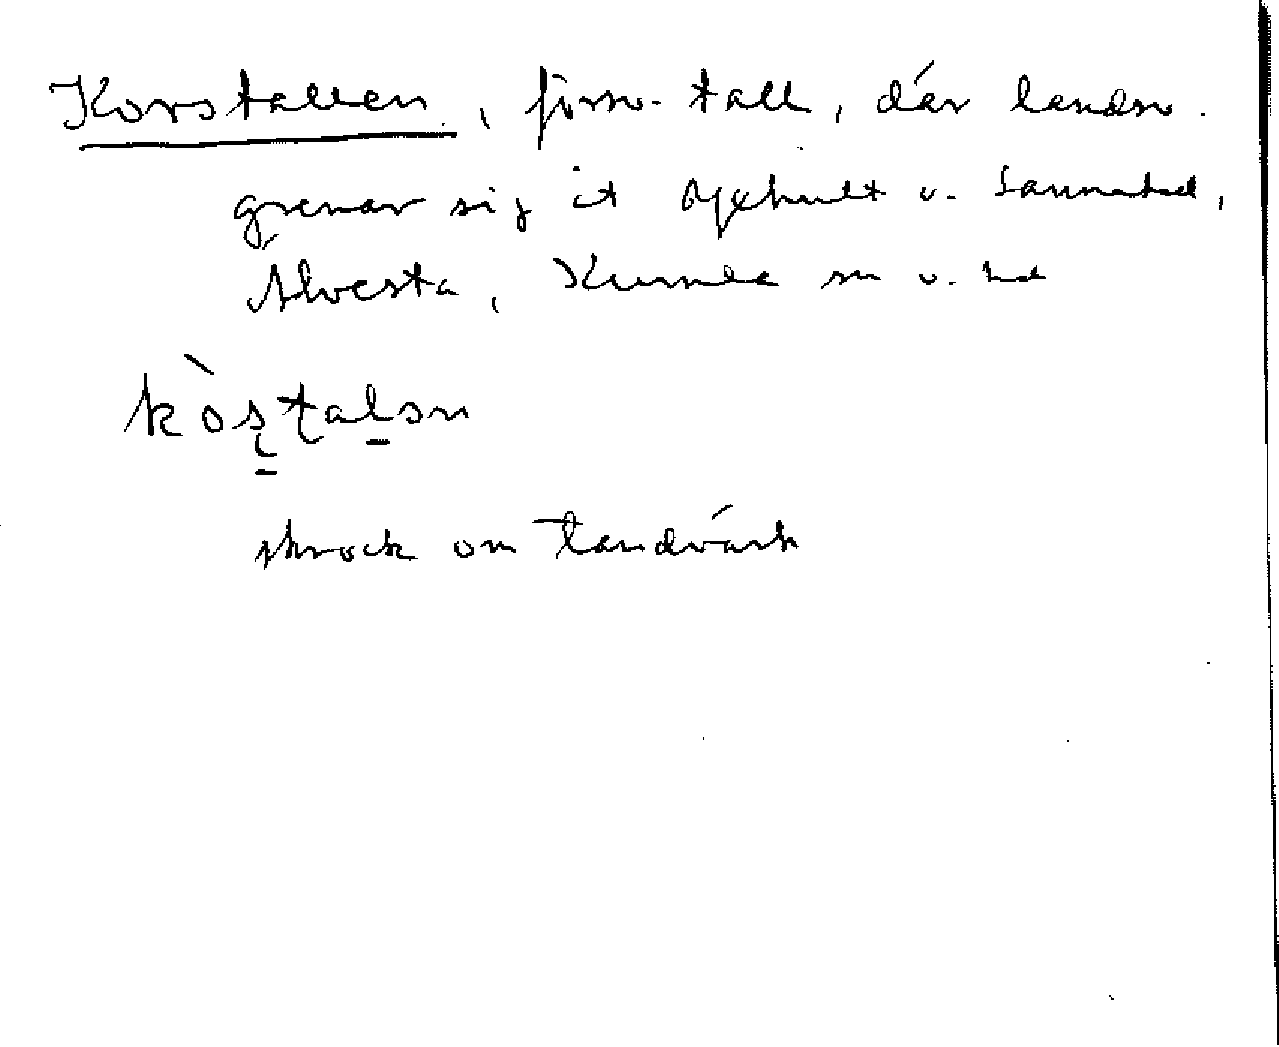 Korstallen, försv. tall, där landsv.
grenar sig åt Öjehult o. Sannahed,
Älvesta, Kumla sn o. hd
kòʂʈalən
skrock om tandvärk